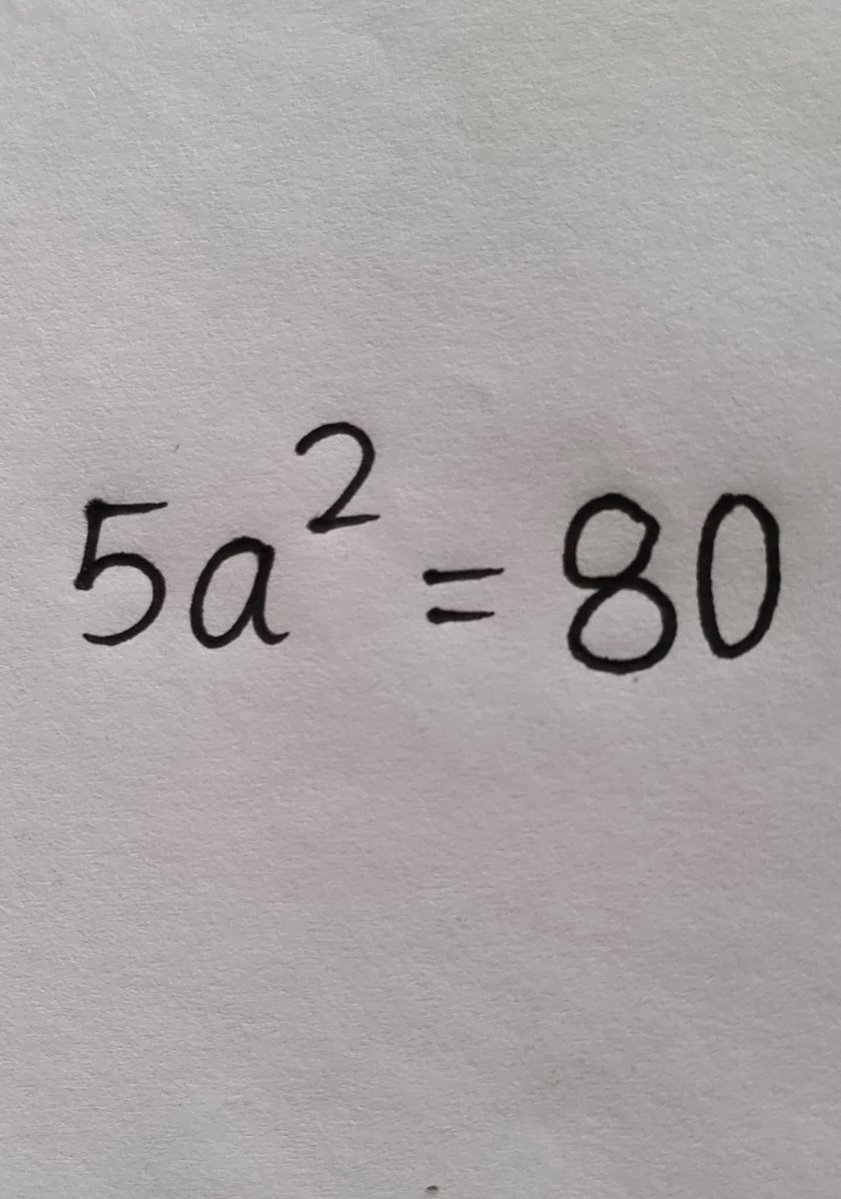 5a² = 80